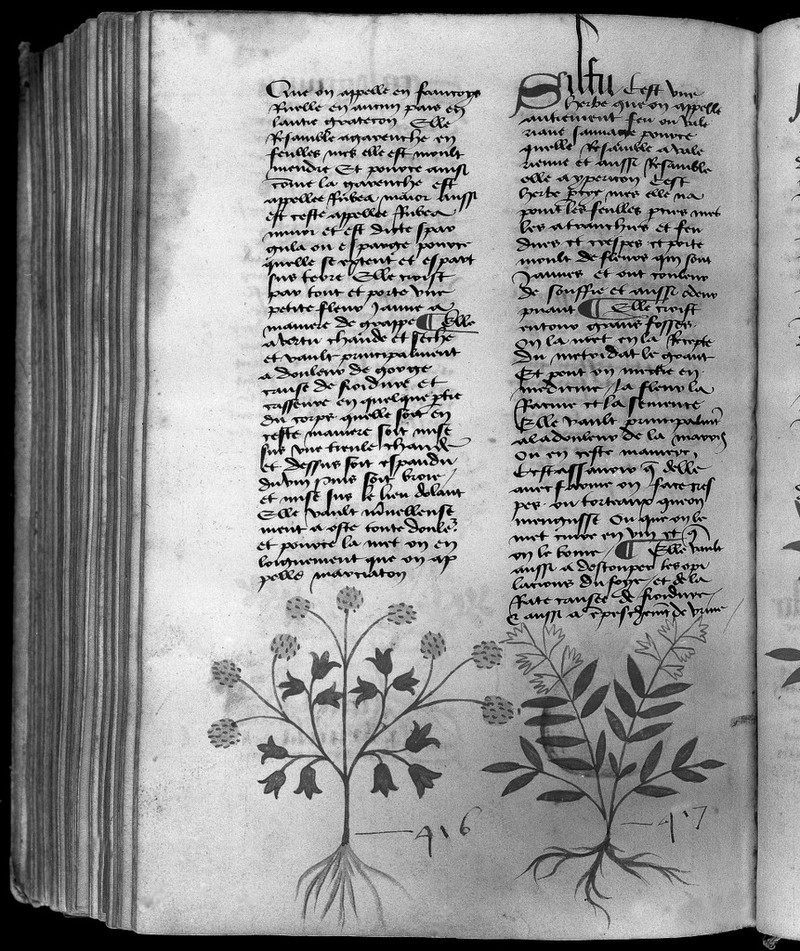 Que on appelle en francoys
Ruelle en aucun pais en
lautre grateron Elle
Resamble a garenche en
feulles mes elle est moult
mendre Et pource ainsi
come la garenche est
appellee Rubea maior aussi
est ceste appellee Rubea
minor et est dicte spar
gula ou esparge pource
quelle se extent et espart
sus terre Elle croist
par tout et porte une
petite fleur jaune a
maniere de grappe ¶ Elle
a vertu chaude et seche
et vault principalment
a douleur de gorge
cause de froidure et
casseure en quelque ptie
du corps quelle soit en
ceste maniere soit mise
sus une tieule chaude
et dessus soit espandu
du vin puis soit broie
et mise sus le lieu dolant
Elle vault mvelleuse
ment a oste toute douleur
et pource la met on en
loignement que on ap
pelle marciaton
Silfu Cest une
herbe que on appelle
autrement feu ou vale
riane sauvaige pource
quelle Resamble a vale
rienne et aussi Resamble
elle a ypericon Cest
herbe pour mes elle na
point les feulles mes
les a tranchies et feu
dues et crespes et porte
moult de fleurs qui sont
jaunes et ont couleur
de souffre et aussi odeur
puant ¶ Elle croist
entour grans fosses
On la met en la Recepte
du metridat le grant
Et peut on mettre en
medicine la fleur la
Racine et la semence
Elle vault principalmt
a la douleur de la marris
ou en ceste maniere
Cest assavoir q delle
avec farine on face cres
pes ou torteaux que on
mengusse Ou que on le
met cuire en vin et q
on le boive ¶ Elle vault
aussi a destouper les opi
lacions du foye et de la
Rate causee de froidure
& aussi a epeschemt de urine
416
417